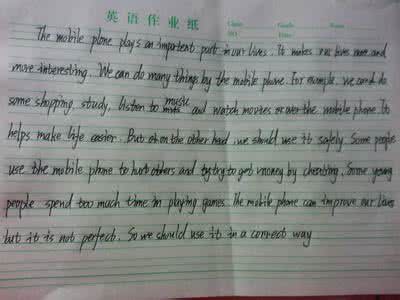 英语作业纸
Class Grade Name
NO: Date:
The mobile phone plays an important part in our lives. It makes our lives more and
more interesting. We can do many things by the mobile phone. For example, we can do
some shopping, study, listen to music and watch movies on the mobile phone. It
helps make life easier. But on the other hand, we should use it safely. Some people
use the mobile phone to hurt others and try to get money by cheating. Some young
people spend too much time in playing games. The mobile phone can improve our lives
but it is not perfect. So we should use it in a correct way